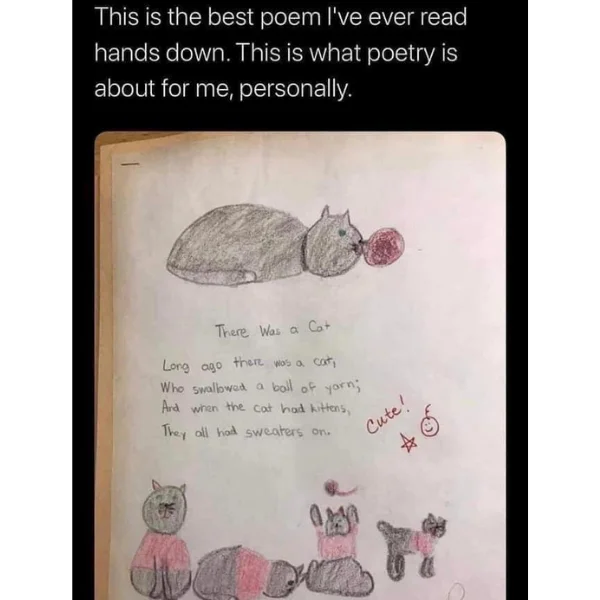 This is the best poem I've ever read
hands down. This is what poetry is
about for me, personally.
There Was a Cat
Long ago there was a cat,
Who swallowed a ball of yarn;
And when the cat had kittens,
They all had sweaters on.
Cute!